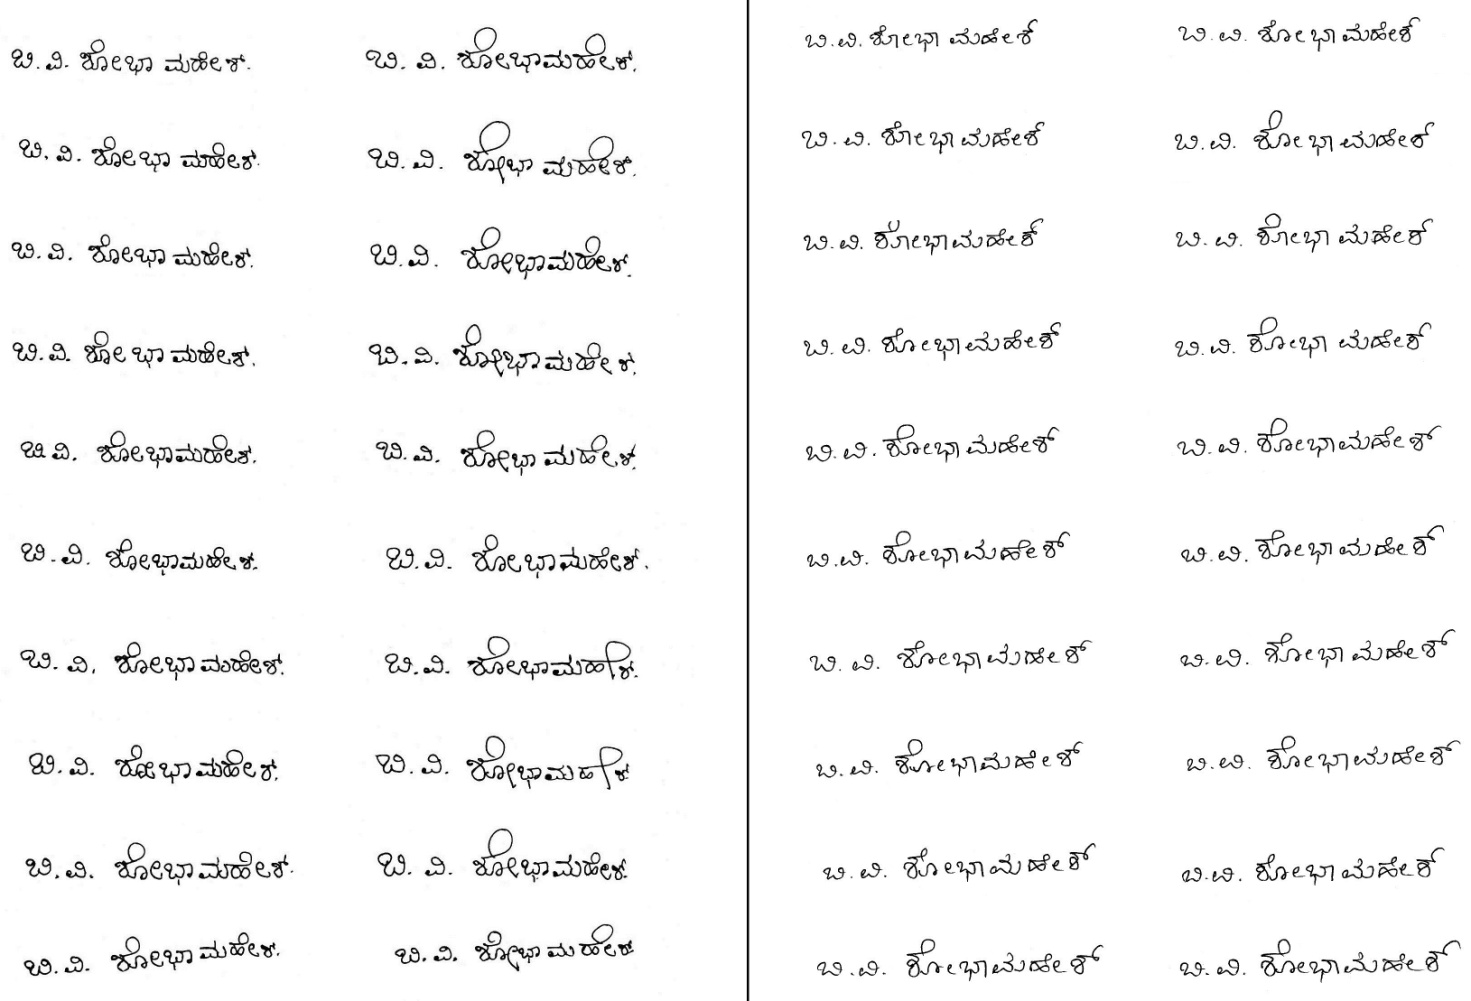 ಬಿ. ವಿ. ಶೋಭಾ ಮಹೇಶ್. ಬಿ. ವಿ. ಶೋಭಾ ಮಹೇಶ್.
ಬಿ. ವಿ. ಶೋಭಾ ಮಹೇಶ್. ಬಿ. ವಿ. ಶೋಭಾ ಮಹೇಶ್.
ಬಿ. ವಿ. ಶೋಭಾ ಮಹೇಶ್. ಬಿ. ವಿ. ಶೋಭಾ ಮಹೇಶ್.
ಬಿ. ವಿ. ಶೋಭಾ ಮಹೇಶ್. ಬಿ. ವಿ. ಶೋಭಾ ಮಹೇಶ್.
ಬಿ. ವಿ. ಶೋಭಾ ಮಹೇಶ್. ಬಿ. ವಿ. ಶೋಭಾ ಮಹೇಶ್.
ಬಿ. ವಿ. ಶೋಭಾ ಮಹೇಶ್. ಬಿ. ವಿ. ಶೋಭಾ ಮಹೇಶ್.
ಬಿ. ವಿ. ಶೋಭಾ ಮಹೇಶ್. ಬಿ. ವಿ. ಶೋಭಾ ಮಹೇಶ್.
ಬಿ. ವಿ. ಶೋಭಾ ಮಹೇಶ್. ಬಿ. ವಿ. ಶೋಭಾ ಮಹೇಶ್
ಬಿ. ವಿ. ಶೋಭಾ ಮಹೇಶ್. ಬಿ. ವಿ. ಶೋಭಾ ಮಹೇಶ್.
ಬಿ. ವಿ. ಶೋಭಾ ಮಹೇಶ್. ಬಿ. ವಿ. ಶೋಭಾ ಮಹೇಶ್
ಬಿ. ವಿ. ಶೋಭಾ ಮಹೇಶ್ ಬಿ. ವಿ. ಶೋಭಾ ಮಹೇಶ್
ಬಿ. ವಿ. ಶೋಭಾ ಮಹೇಶ್ ಬಿ. ವಿ. ಶೋಭಾ ಮಹೇಶ್
ಬಿ. ವಿ. ಶೋಭಾ ಮಹೇಶ್ ಬಿ. ವಿ. ಶೋಭಾ ಮಹೇಶ್
ಬಿ. ವಿ. ಶೋಭಾ ಮಹೇಶ್ ಬಿ. ವಿ. ಶೋಭಾ ಮಹೇಶ್
ಬಿ. ವಿ. ಶೋಭಾ ಮಹೇಶ್ ಬಿ. ವಿ. ಶೋಭಾ ಮಹೇಶ್
ಬಿ. ವಿ. ಶೋಭಾ ಮಹೇಶ್ ಬಿ. ವಿ. ಶೋಭಾ ಮಹೇಶ್
ಬಿ. ವಿ. ಶೋಭಾ ಮಹೇಶ್ ಬಿ. ವಿ. ಶೋಭಾ ಮಹೇಶ್
ಬಿ. ವಿ. ಶೋಭಾ ಮಹೇಶ್ ಬಿ. ವಿ. ಶೋಭಾ ಮಹೇಶ್
ಬಿ. ವಿ. ಶೋಭಾ ಮಹೇಶ್ ಬಿ. ವಿ. ಶೋಭಾ ಮಹೇಶ್
ಬಿ. ವಿ. ಶೋಭಾ ಮಹೇಶ್ ಬಿ. ವಿ. ಶೋಭಾ ಮಹೇಶ್